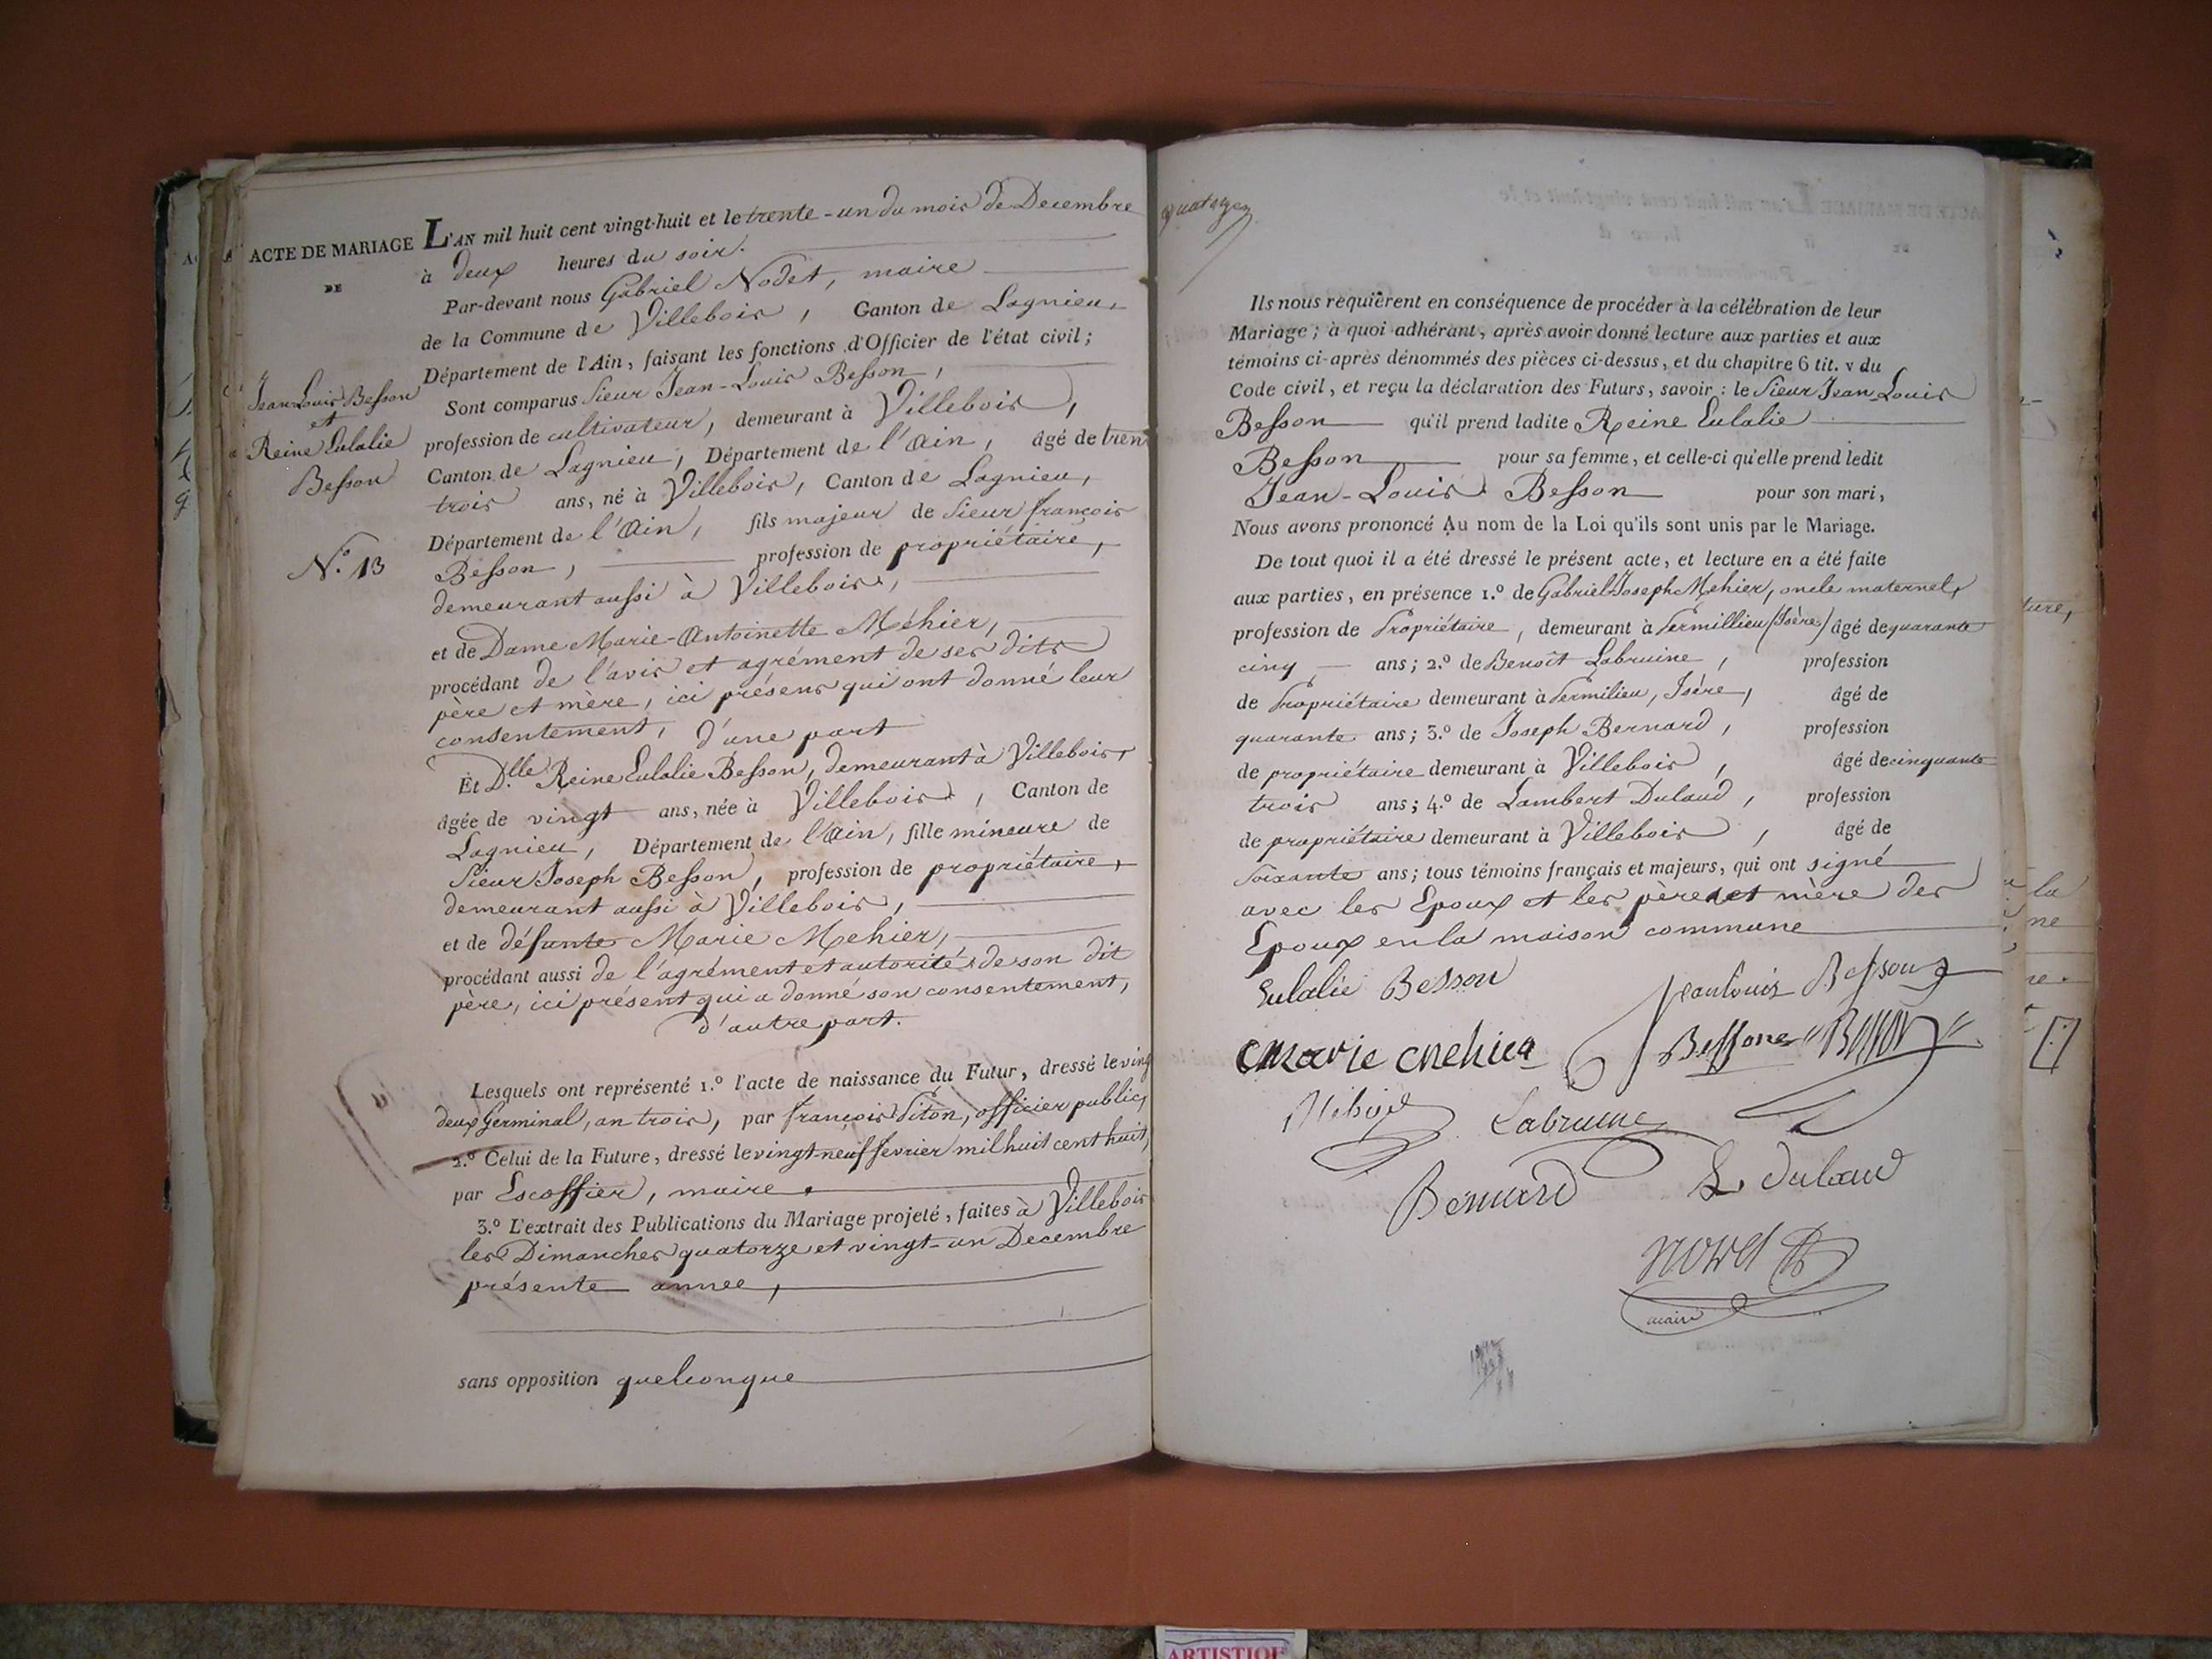 ACTE DE MARIAGE
DE
Jean Louis Besson
et
Reine Eulalie
Besson
N.º 13
L'AN mil huit cent vingt-huit et le trente-un du mois de Decembre
à deux heures du soir.
Par-devant nous Gabriel Nodet, maire
de la Commune de Villebois, Canton de Lagnieu,
Département de l'Ain, faisant les fonctions d'Officier de l'état civil;
Sont comparus Sieur Jean-Louis Besson,
profession de cultivateur, demeurant à Villebois,
Canton de Lagnieu, Département de l'Ain, âgé de tren
trois ans, né à Villebois, Canton de Lagnieu,
Département de l'Ain, fils majeur de Sieur françois
Besson, profession de propriétaire,
demeurant aussi à Villebois,
et de Dame Marie-Antoinette Méhier,
procédant de l'avis et agrément de ses dits
père et mère, ici présens qui ont donné leur
consentement, d'une part
Et D.lle Reine Eulalie Besson, demeurant à Villebois,
âgée de vingt ans, née à Villebois, Canton de
Lagnieu, Département de l'Ain, fille mineure de
Sieur Joseph Besson, profession de propriétaire,
demeurant aussi à Villebois,
et de défunte Marie Mehier,
procédant aussi de l'agrément et autorité de son dit
père, ici présent qui a donné son consentement,
d'autre part.
Lesquels ont représenté 1.º l'acte de naissance du Futur, dressé le ving
deux Germinal, an trois, par françois Siton, officier public,
2.º Celui de la Future, dressé le vingt-neuf fevrier mil huit cent huit,
par Escoffier, maire
3.º L'extrait des Publications du Mariage projeté, faites à Villebois
les Dimanches quatorze et vingt-un Decembre
présente annee,
sans opposition quelconque
Ils nous requièrent en conséquence de procéder à la célébration de leur
Mariage; à quoi adhérant, après avoir donné lecture aux parties et aux
témoins ci-après dénommés des pièces ci-dessus, et du chapitre 6 tit. v du
Code civil, et reçu la déclaration des Futurs, savoir: le Sieur Jean-Louis
Besson qu'il prend ladite Reine Eulalie
Besson pour sa femme, et celle-ci qu'elle prend ledit
Jean-Louis Besson pour son mari,
Nous avons prononcé Au nom de la Loi qu'ils sont unis par le Mariage.
De tout quoi il a été dressé le présent acte, et lecture en a été faite
aux parties, en présence 1.º de Gabriel Joseph Mehier, oncle maternel,
profession de Propriétaire, demeurant à Sermillieu (Isère) âgé de quarante
cinq ans; 2.º de Benoît Labruine, profession
de Propriétaire demeurant à Sermilieu, Isère, âgé de
quarante ans; 3.º de Joseph Bernard, profession
de propriétaire demeurant à Villebois, âgé de cinquante
trois ans; 4.º de Lambert Dulaud, profession
de propriétaire demeurant à Villebois, âgé de
Soixante ans; tous témoins français et majeurs, qui ont signé
avec les Epoux et les pères et mère des
Epoux en la maison commune
Eulalie Besson
Jean Louis Besson
Marie Mehier
Besson
Labruine
Bernard
L Dulaud
Nodet
maire
ture,
la
ne
ARTISTIQUE